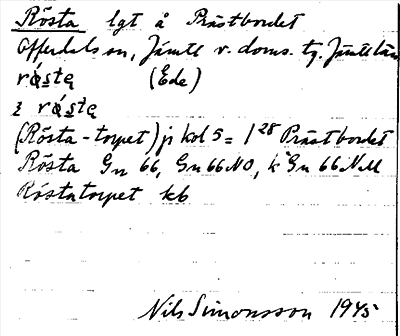 Rösta lgt å Prästbordet
Offerdals sn, Jämtl. v. doms. tg. Jämtl. län
röstę (Ede)
i röstę
(Rösta-torpet) jr kol 5 = 1²⁸ Prästbordet
Rösta Gn 66, Gn 66 NO, k Gn 66 NM
Röstatorpet kb
Nils Simonsson 1945